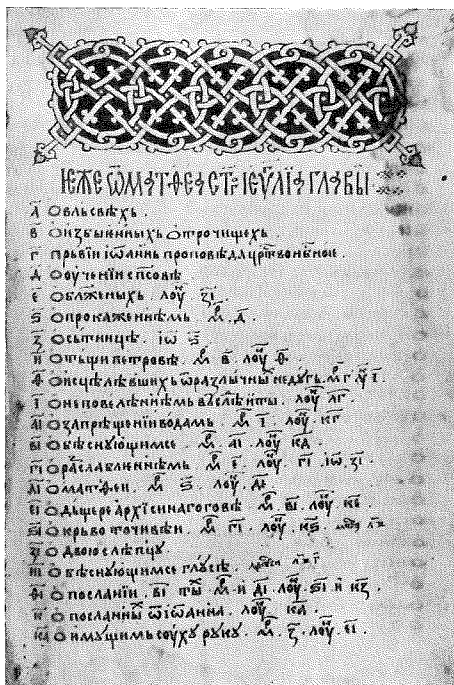 ІЄЖЕ Ѿ МАТѲЕꙗ СТ҃Г ІЕѴЛІꙗ ГЛАВЫ
а҃ О вльсвѣхь .
в҃ О избьѥнныхь отрочищехь .
г҃ Прьвіи іѡ҃аннь проповѣда црⷭ҇тво нбⷭ҇ноѥ .
д҃ О оученіи сп҃совѣ
е҃ О блж҃еныхь . лоуⷦ҇ з҃і .
ѕ҃ О прокаженнѣмь мⷬ҇ . д҃ .
з҃ О сьтницѣ . іѡ҃ ѕ҃ .
и҃ О тьщи петровѣ . мⷬ҇ в҃ . лоуⷦ҇ ѳ҃ .
ѳ҃ О исцѣлѣвшихь ѿ различныⷯ недугь . мⷬ҇ г҃ . лⷦ҇ і҃ .
і҃ О не повелѣннѣмь вьслѣ ити . лоуⷦ҇ лг҃ .
аі҃ О запрѣщеніи водамь мⷬ҇ і҃ . лоуⷦ҇ кг҃
ві҃ О бѣснующимсе . мⷬ҇ аі҃ . лоуⷦ҇ кд҃ .
гі҃ О раⷭ҇слабленнѣмь . мⷬ҇ е҃ . лоуⷦ҇ гі҃ . іѡ҃ . зі҃ .
ді҃ О матѳеи . мⷬ҇ ѕ҃ . лоуⷦ҇ ді҃ .
еі҃ О дьщере архісинагоговѣ мⷬ҇ ві҃ . лоуⷦ҇ ке҃ .
ѕі҃ О крьвоточивѣи . мⷬ҇ гі҃ . лоуⷦ҇ кѕ҃ .
зі҃ О двою слѣпцу .
иі҃ О бѣснующимсе глусѣ .
ѳі҃ О посланіи . ві҃ тыⷯ мⷬ҇ и҃ ді҃ . лоуⷦ҇ ѕі҃ и҃ кз҃ .
к҃ О посланныⷯ ѿ іѡанна . лоуⷦ҇ ка҃ .
ка҃ О имущимь соуху руку . мⷬ҇ . з҃ . лоуⷦ҇ еі҃ .